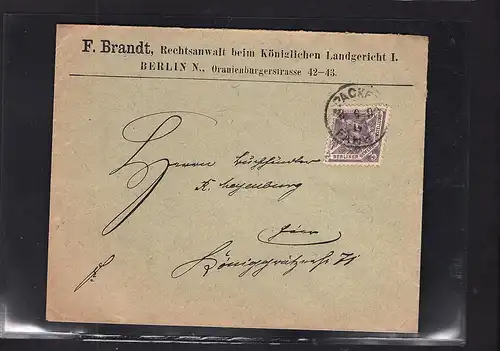 F. Brandt, Rechtsanwalt beim Königlichen Landgericht I.
BERLIN N., Oranienburgerstrasse 42—43.
PACKET
BERLINER
Herrn Buchhändler
hier
Königgrätzerstr 71